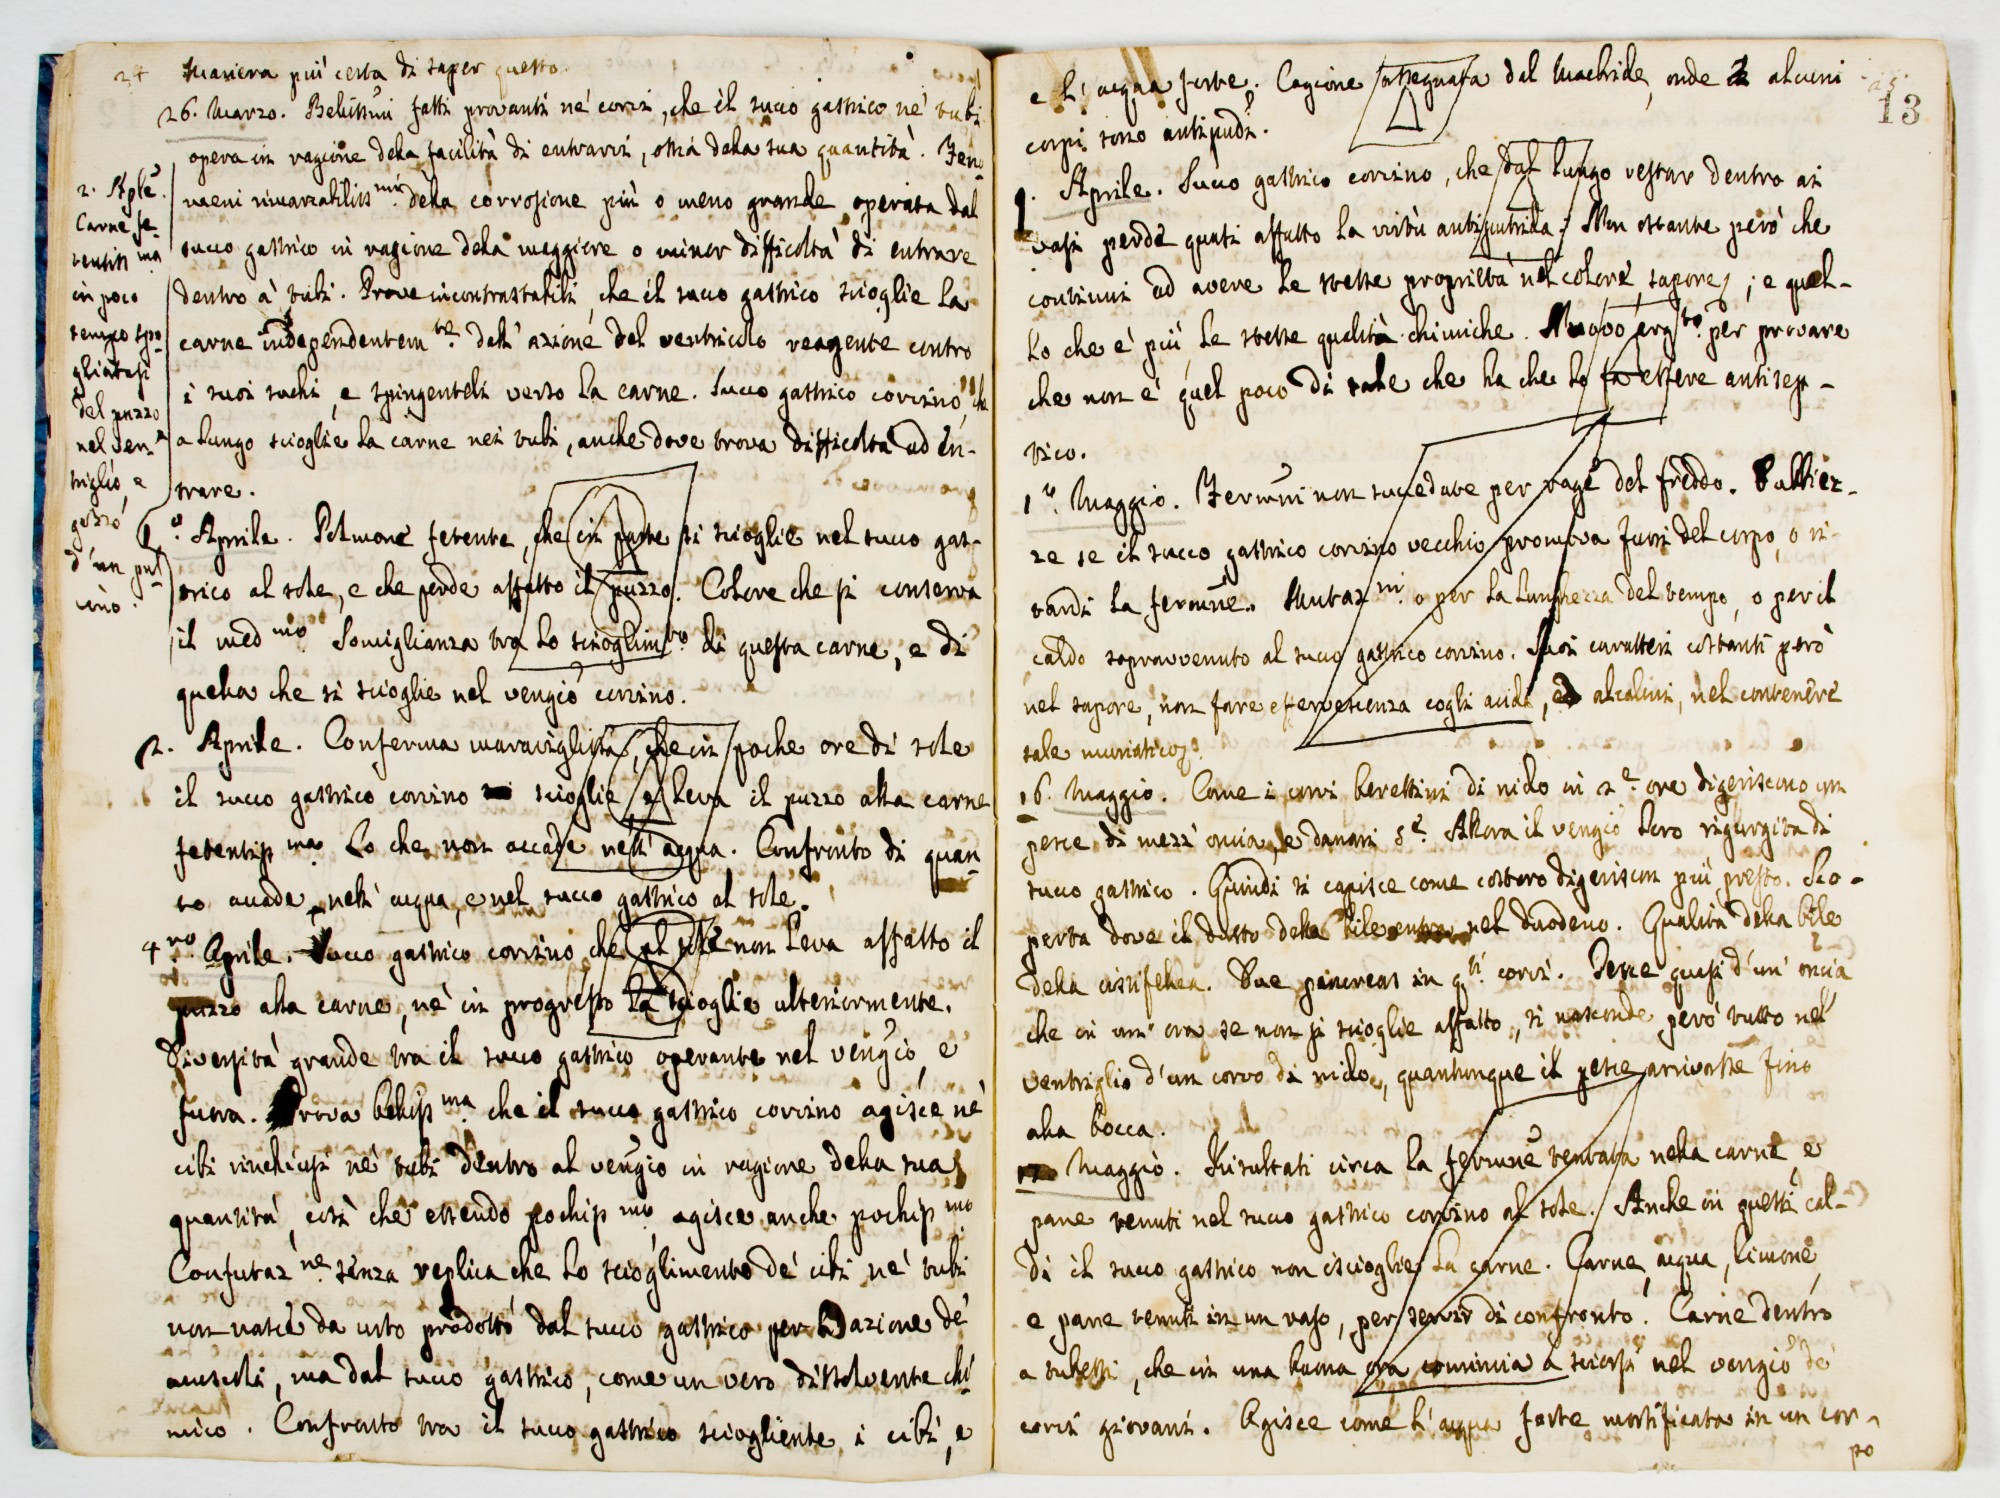 24 Maniera più certa di saper questo.
26. Marzo. Bellissimi fatti provanti ne' corvi, che il succo gastrico ne' tubi
opera in ragione della facilità di entrarvi, ossia della sua quantità. Feno
meni rimarcabiliss mi. della corrosione più o meno grande operata dal
succo gastrico in ragione della maggiore o minor difficoltà di entrare
dentro a' tubi. Prove incontrastabili, che il succo gastrico scioglie la
carne independentem te. dall' azione del ventricolo reagente contro
i suoi suchi, e spingenteli verso la carne. Succo gastrico corvino, che
a lungo scioglie la carne nei tubi, anche dove trova difficoltà ad en-
trare.
2. Aple.
Carne fe-
tentiss ma
in poco
tempo spo
gliatasi
del puzzo
nel ven
triglio, e
gozzo
d'un pul
cino.
1. o Aprile. Polmone fetente, che in parte si scioglie nel succo gas-
trico al sole, e che perde affatto il puzzo. Colore che si conserva
il med mo. Somiglianza tra lo scioglim to. di questa carne, e di
quella che si scioglie nel vengiò corvino.
2. Aprile. Conferma maravigliosa, che in poche ore di sole
il succo gastrico corvino scioglie, e leva il puzzo alla carne
fetentiss ma. Lo che non accade nell' acqua. Confronto di quan
to accade nell' acqua, e nel succo gastrico al sole.
4 ro. Aprile. Succo gastrico corvino che al sole non leva affatto il
puzzo alla carne, nè in progresso la scioglie ulteriormente.
Diversità grande tra il succo gastrico operante nel vengiò, e
fuora. Prova belliss ma. che il succo gastrico corvino agisce ne'
cibi rinchiusi ne' tubi dentro al vengiò in ragione della sua
quantità, così che essendo pochiss mo, agisce anche pochiss mo
Confutaz ne. senza replica che lo scioglimento de' cibi ne' tubi
non nasce da urto prodotto dal succo gastrico per l'azione de'
muscoli, ma dal succo gastrico, come un vero dissolvente chi
mico. Confronto tra il succo gastrico sciogliente i cibi, e
13
e l' acqua forte. Cagione assegnata dal Macbride, onde alcuni
corpi sono antiputri.
9. Aprile. Succo gastrico corvino, che dal lungo restar dentro ai
vasi perde quasi affatto la virtù antiputrida; Non ostante però che
continui ad avere le stesse proprietà nel colore sapore; e quel-
lo che è più le stesse qualità chimiche. Nuovo arg to. per provare
che non è quel poco di sale che ha che lo fa essere antisep-
tico.
1 o. Maggio. Fermni non succedute per rage del freddo.
se se il succo gastrico corvino vecchio promova fuori del corpo, o ri-
tardi la fermne. Mutaz ni. o per la lunghezza del tempo, o per il
caldo sopravvenuto al succo gastrico corvino. Suoi caratteri costanti però
nel sapore, non fare effervescenza cogli acidi, ed alcalini, nel contenere
sale muriatico.
16. Maggio. Come i corvi berettini di nido in 2 e. ore digeriscono un
pesce di mezz' oncia, e danari 5 e. Allora il vengiò loro rigurgita di
succo gastrico. Quindi si capisce come costoro digeriscon più presto. Sco-
perta dove il dutto della bile entra nel duodeno. Qualità della bile
della cistifellea. Due pancreas in q ti. corvi. Pesce quasi d'un' oncia
che in un' ora se non si scioglie affatto, si nasconde però tutto nel
ventriglio d'un corvo di nido, quantunque il pesce arrivasse fino
alla bocca.
17 Maggio. Risultati circa la fermne tentata nella carne, e
pane tenuti nel succo gastrico corvino al sole. Anche in questi cal-
di il succo gastrico non iscioglie la carne. Carne, acqua, limone,
e pane tenuti in un vaso, per servir di confronto. Carne dentro
a tubetti, che in una buona ora comincia a sciorsi nel vengiò de'
corvi giovani. Agisce come l' acqua forte mortificata in un cor-
po